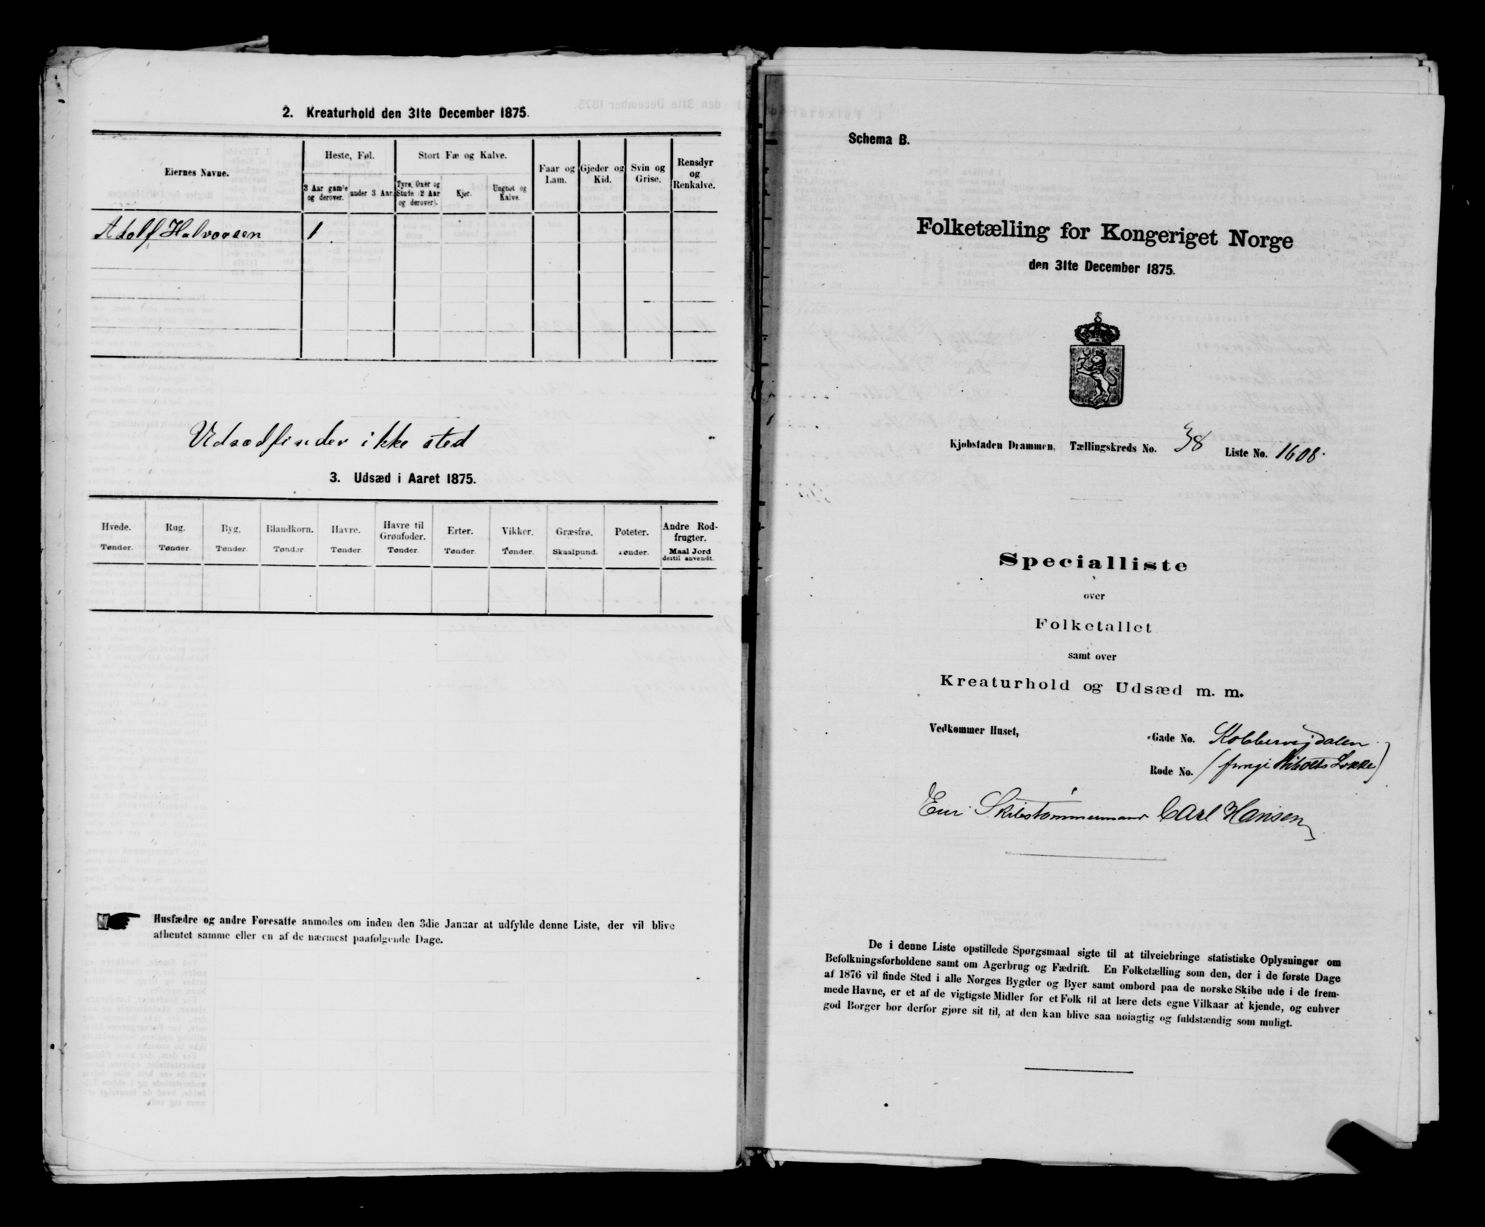 2. Kreaturhold den 31te December 1875.
Eiernes Navne.
Heste, Føl.
Stort Fæ og Kalve.
Faar og Lam.
Gjeder og Kid.
Svin og Grise.
Rensdyr og Renkalve.
3 Aar gamle og derover.
under 3 Aar.
Tyre, Oxer og Stude (2 Aar og derover).
Kjør.
Ungnøt og Kalve.
Adolf Halvorsen 1
Udsæd finder ikke sted
3. Udsæd i Aaret 1875.
Hvede. Rug. Byg. Blandkorn. Havre. Havre til Grønfoder. Erter. Vikker. Græsfrø. Poteter. Andre Rodfrugter.
Tønder. Tønder. Tønder. Tønder. Tønder. Tønder. Tønder. Tønder. Skaalpund. Tønder. Maal Jord dertil anvendt.
Husfædre og andre Foresatte anmodes om inden den 3die Januar at udfylde denne Liste, der vil blive
afhentet samme eller en af de nærmest paafølgende Dage.
Schema B.
Folketælling for Kongeriget Norge
den 31te December 1875.
Kjøbstaden Drammen. Tællingskreds No. 38 Liste No. 1608.
Specialliste
over
Folketallet
samt over
Kreaturhold og Udsæd m. m.
Vedkommer Huset, Gade No. Kobbervigdalen
Rode No.
Eier Skibstømmermand Carl Hansen
De i denne Liste opstillede Spørgsmaal sigte til at tilveiebringe statistiske Oplysninger om
Befolkningsforholdene samt om Agerbrug og Fædrift. En Folketælling som den, der i de første Dage
af 1876 vil finde Sted i alle Norges Bygder og Byer samt ombord paa de norske Skibe ude i de frem-
mede Havne, er et af de vigtigste Midler for et Folk til at lære dets egne Vilkaar at kjende, og enhver
god Borger bør derfor gjøre sit til, at den kan blive saa nøiagtig og fuldstændig som muligt.